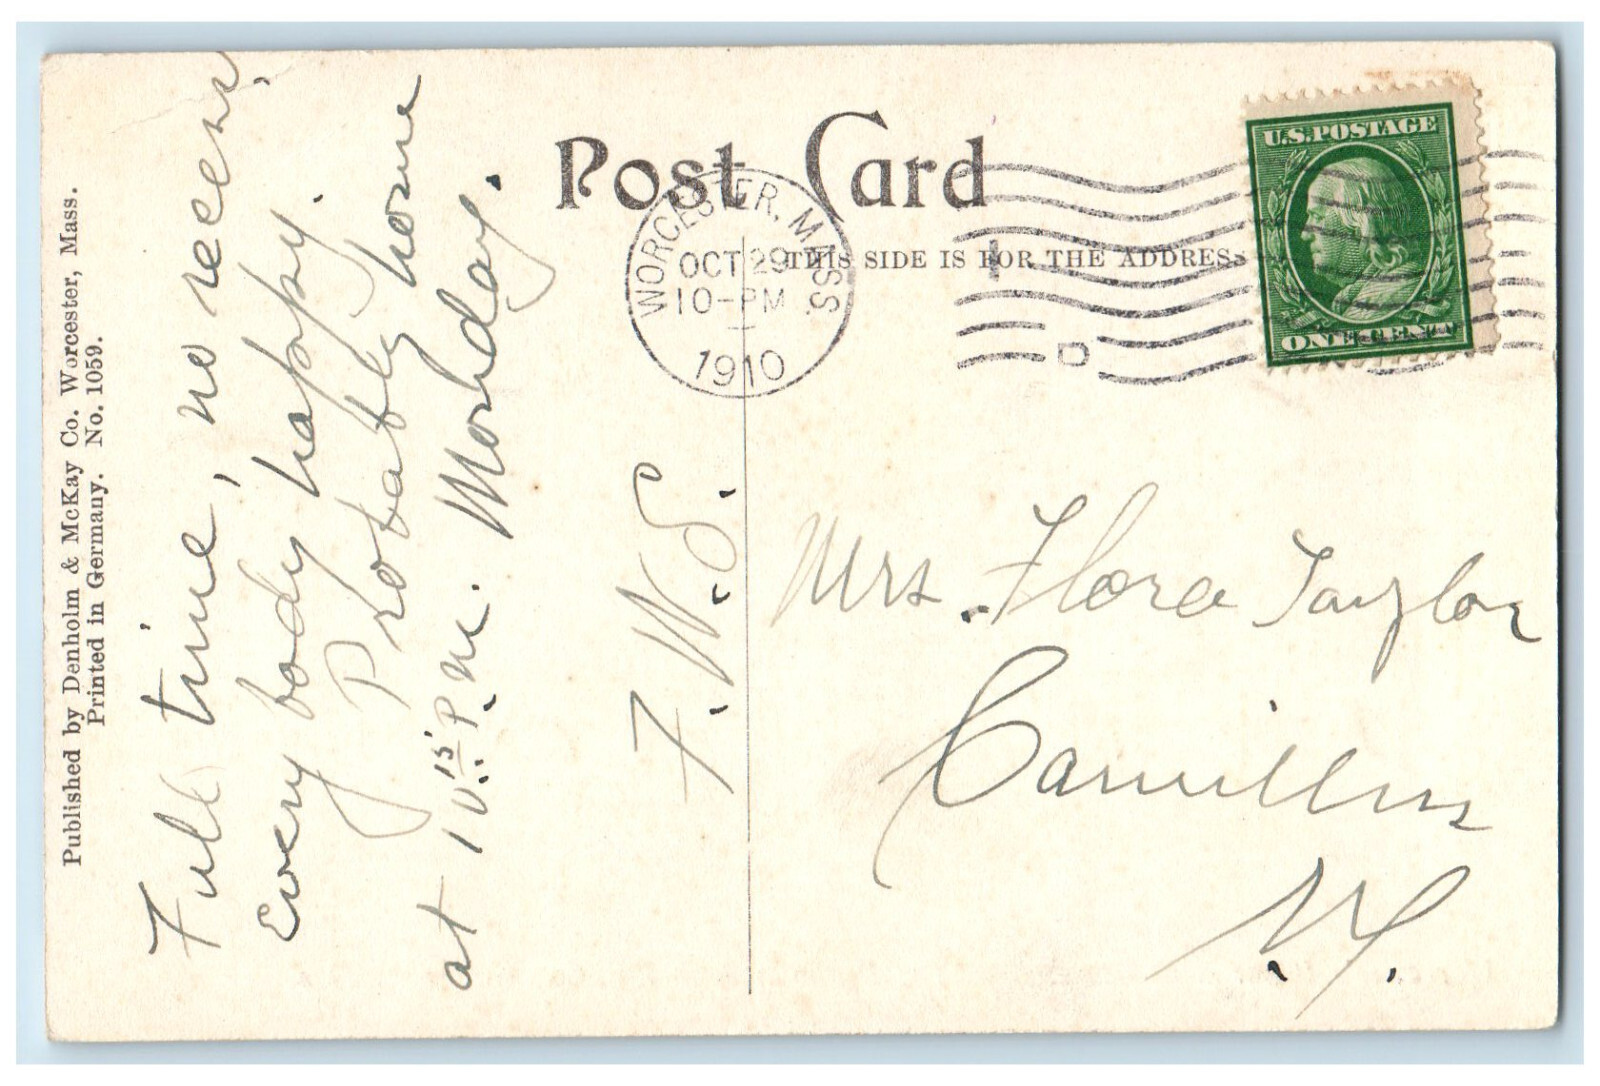 Published by Denholm & McKay Co. Worcester, Mass.
Printed in Germany. No. 1059.
Full time, no recess.
Every body happy.
Probably home
at 10.15 P.M. Monday.
F.W.S.
Post Card
THIS SIDE IS FOR THE ADDRESS
WORCESTER, MASS.
OCT 29
10-PM
1910
D
U.S. POSTAGE
ONE CENT
Mrs. Flora Taylor
Camillus
N.Y.